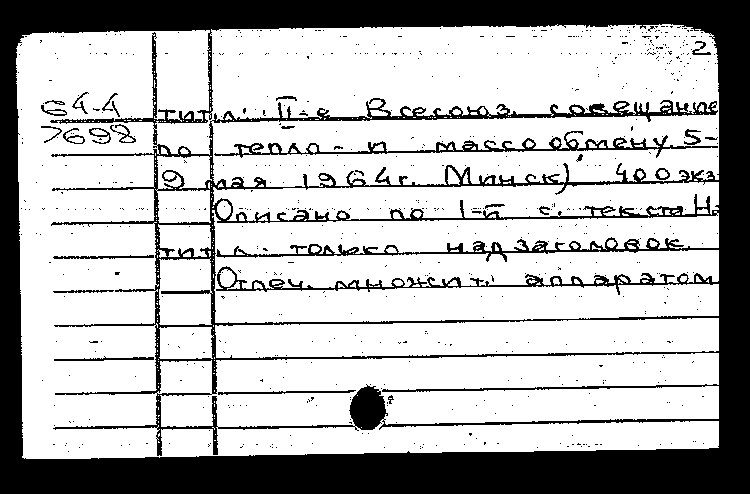 2
64-4 титл.: II-е Всесоюз. совещание
7698
по тепло- и массообмену. 5-
9 мая 1964г. Минск) 400 экз.
Описано по 1-й с. текста На
титл.: только надзаголовок.
Отпеч. множит. аппаратом